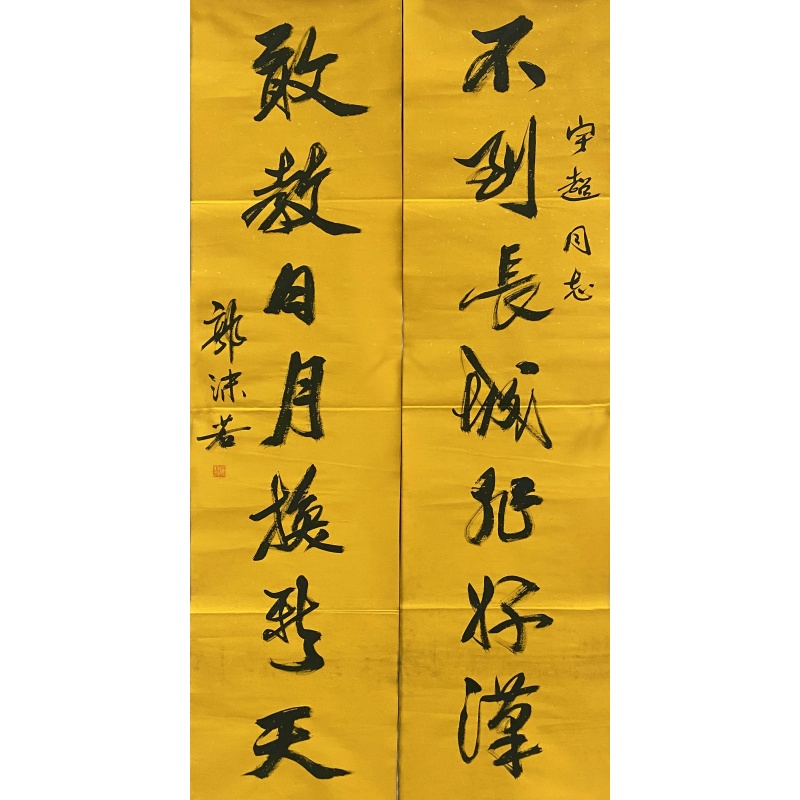 宇超同志
不到長城非好漢
敢教日月換新天
郭沫若